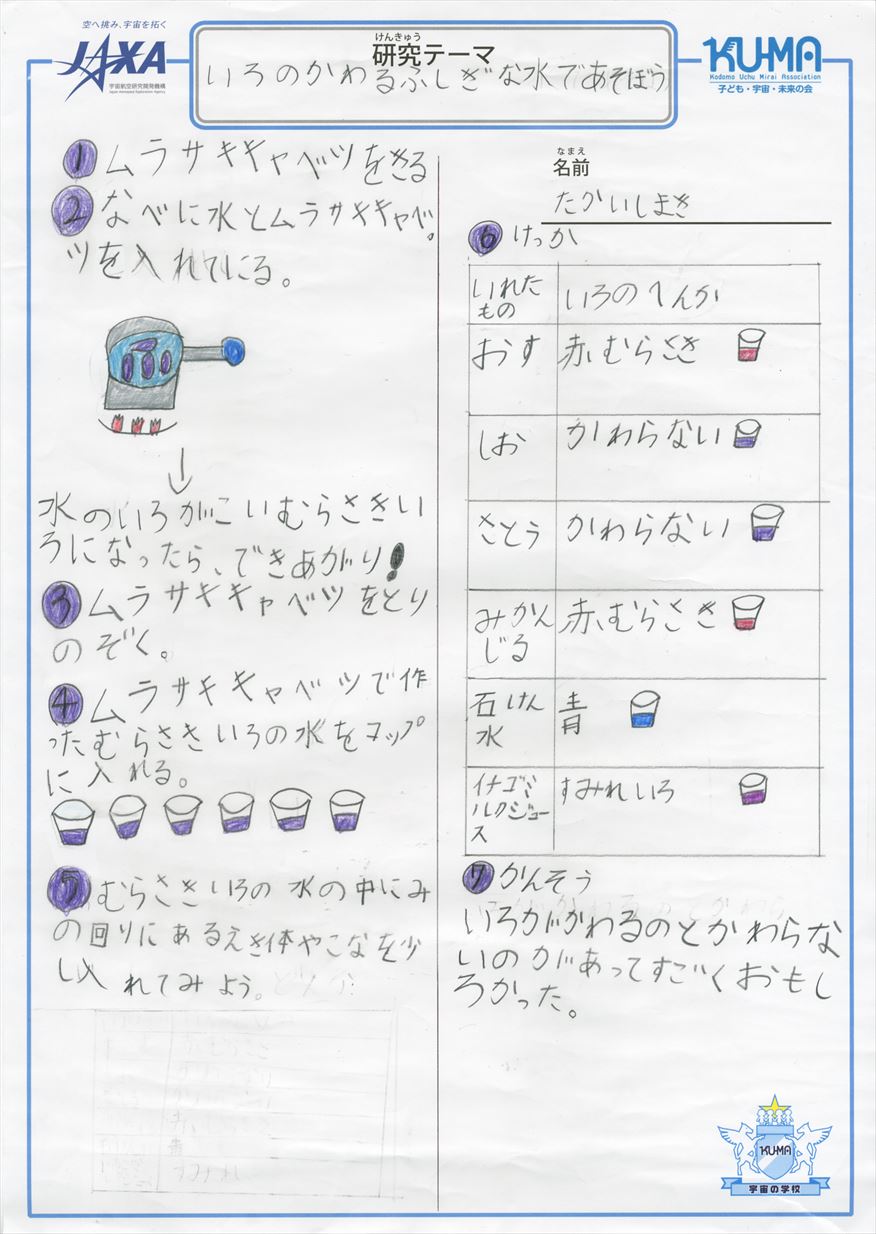 空へ挑み、宇宙を拓く
JAXA
宇宙航空研究開発機構
Japan Aerospace Exploration Agency
けんきゅう
研究テーマ
いろのかわるふしぎな水であそぼう
KU-MA
Kodomo Uchu Mirai Association
子ども・宇宙・未来の会
なまえ
名前
たかいしまき
1 ムラサキキャベツをきる
2 なべに水とムラサキキャベ
ツを入れてにる。
↓
水のいろがこいむらさきい
ろになったら、できあがり!
3 ムラサキキャベツをとり
のぞく。
4 ムラサキキャベツで作
ったむらさきいろの水をコップ
に入れる。
5 むらさきいろの水の中にみ
の回りにあるえき体やこなを少
し入れてみよう。
6 けっか
いれた
もの
いろのへんか
おす
赤むらさき
しお
かわらない
さとう
かわらない
みかん
じる
赤むらさき
石けん
水
青
イチゴミ
ルクジュー
ス
すみれいろ
7 かんそう
いろがかわるのとかわらな
いのがあってすごくおもし
ろかった。
KU-MA
宇宙の学校